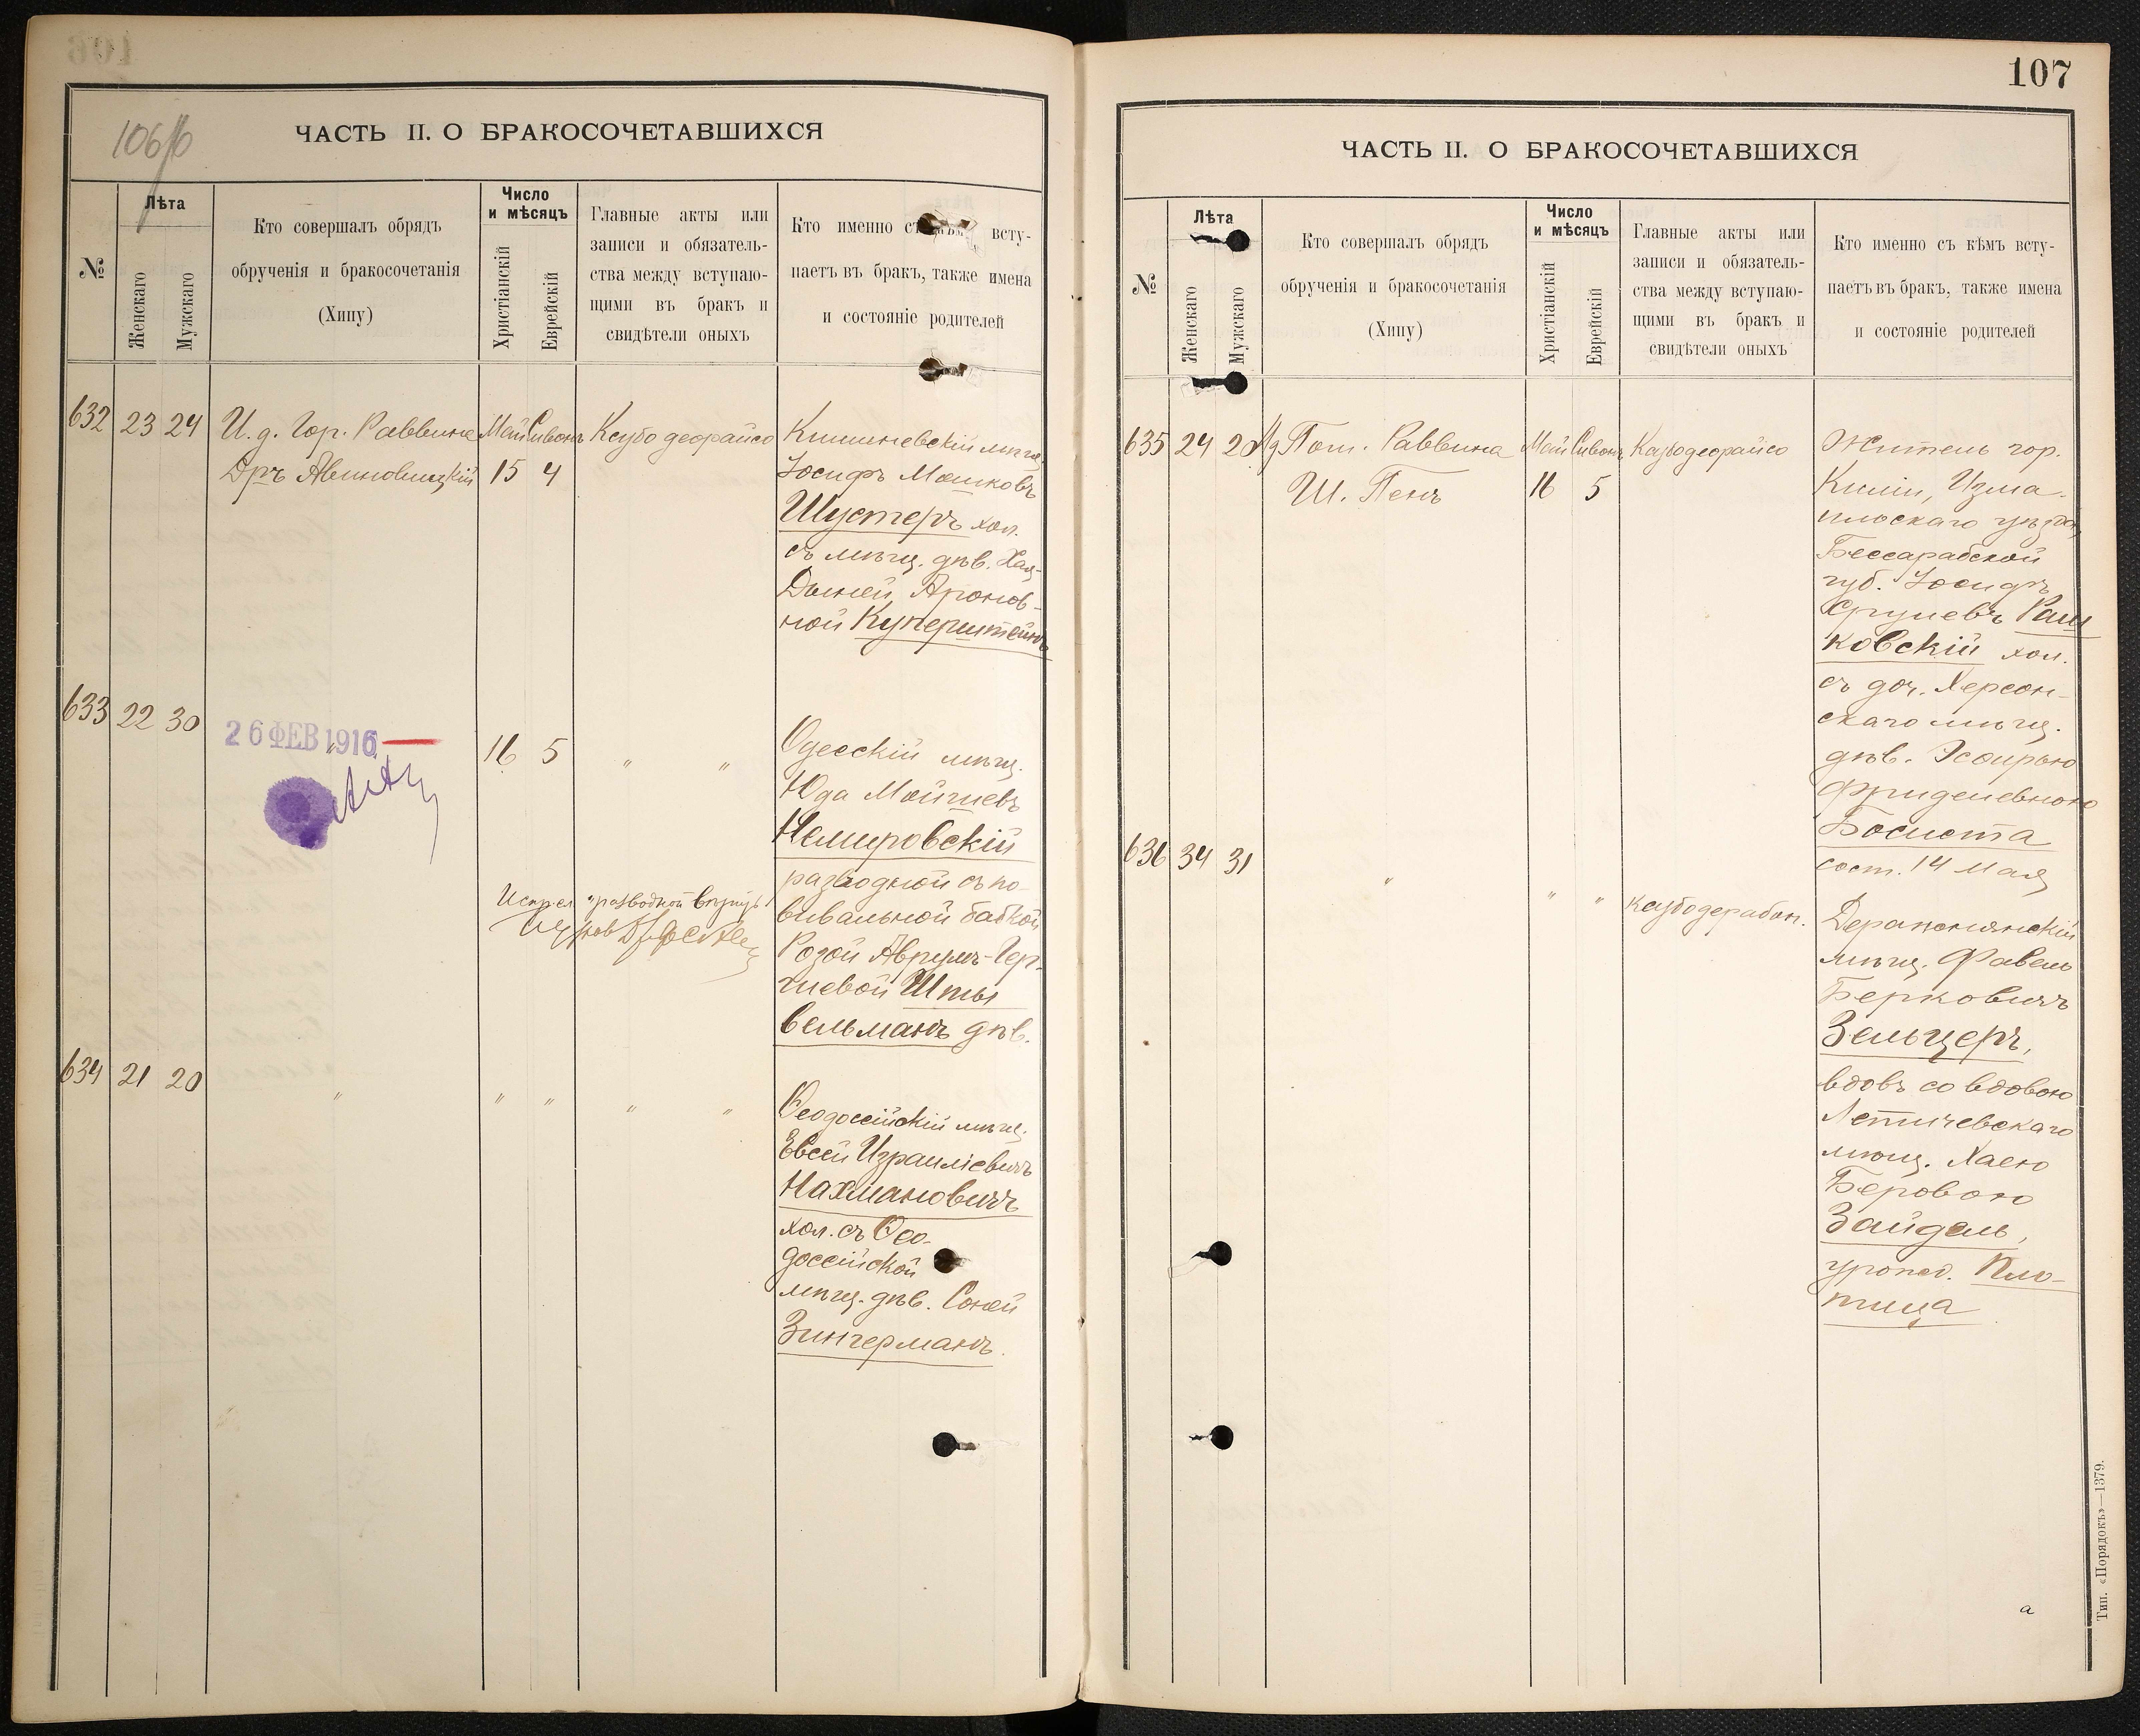 106/б
ЧАСТЬ II. О БРАКОСОЧЕТАВШИХСЯ
№
Лѣта
Женскаго
Мужскаго
Кто совершалъ обрядъ
обрученія и бракосочетанія
(Хипу)
Число
и мѣсяцъ
Христіанскій
Еврейскій
Главные акты или
записи и обязатель-
ства между вступаю-
щими въ бракъ и
свидѣтели оныхъ
Кто именно съ кѣмъ всту-
паетъ въ бракъ, также имена
и состояніе родителей
632 23 24
И. д. Гор. Раввина
Дръ Авиновицкій
Май Сивонъ
15 4
Ксубо деорайсо
Кишиневскій мѣщ.
Іосифъ Мошковъ
Шустеръ хол.
съ мѣщ. дѣв. Хая-
Двосей Ароновъ-
ной Куперштейнъ
633 22 30
26 ФЕВ 1916
16 5
" "
Одесскій мѣщ.
Юда Мойшевъ
Немировскій
разводной съ по-
вивальной бабкой
Розой Аврумъ-Гер-
шевой Шты
вельманъ дѣв.
634 21 20
"
" "
" "
Ѳеодосійскій мѣщ.
Евсей Израилевичъ
Нахмановичъ
хол. съ Ѳео-
досійской
мѣщ. дѣв. Соней
Зингерманъ.
107
ЧАСТЬ II. О БРАКОСОЧЕТАВШИХСЯ
№
Лѣта
Женскаго
Мужскаго
Кто совершалъ обрядъ
обрученія и бракосочетанія
(Хипу)
Число
и мѣсяцъ
Христіанскій
Еврейскій
Главные акты или
записи и обязатель-
ства между вступаю-
щими въ бракъ и
свидѣтели оныхъ
Кто именно съ кѣмъ всту-
паетъ въ бракъ, также имена
и состояніе родителей
635 24 28
Пом. Раввина
Ш. Пенъ
Май Сивонъ
16 5
Ксубо деорайсо
Житель гор.
Киліи, Изма-
ильскаго уѣзда,
Бессарабской
губ. Іосифъ
Сруневъ Раш
ковскій хол.
съ доч. Херсон-
скаго мѣщ.
дѣв. Эсѳирью
Фриделевною
Босиста
сост. 14 Мая
636 34 31
"
" "
Ксубодерабон.
Деражнянскій
мѣщ. Файвель
Берковичъ
Зельцеръ,
вдовъ со вдовою
Летичевскаго
мѣщ. Хаею
Беровою
Зайдель,
урожд. Пло-
тица
Тип. «Порядокъ»—1379.